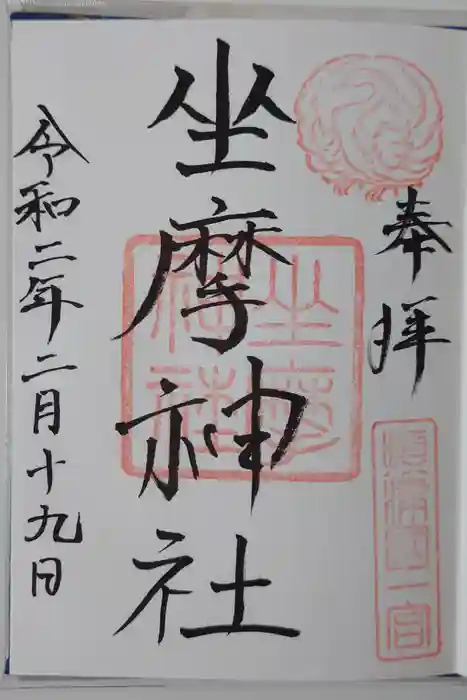 奉拝
摂津国一宮
坐摩神社
坐摩神社
令和二年二月十九日